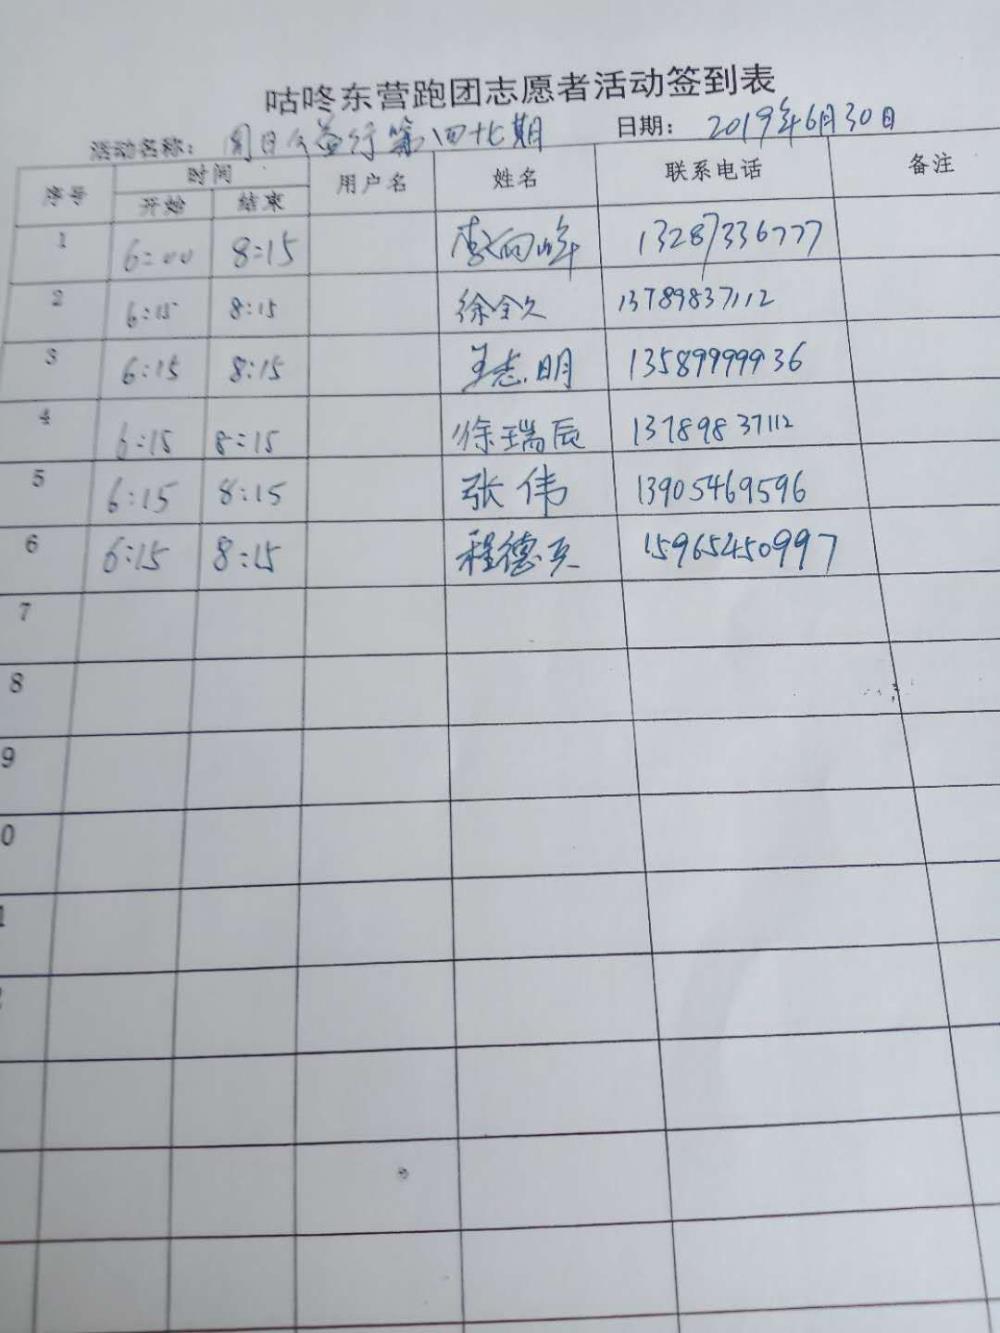 咕咚东营跑团志愿者活动签到表
活动名称： 周日公益行第四十七期 日期： 2019年6月30日
序号 时间 用户名 姓名 联系电话 备注
开始 结束
1 6:00 8:15 13287336777
2 6:15 8:15 徐全久 13789837112
3 6:15 8:15 王志明 13589999936
4 6:15 8:15 徐瑞辰 13789837112
5 6:15 8:15 张伟 13905469596
6 6:15 8:15 程德 15965450997
7
8
9
0
1
2